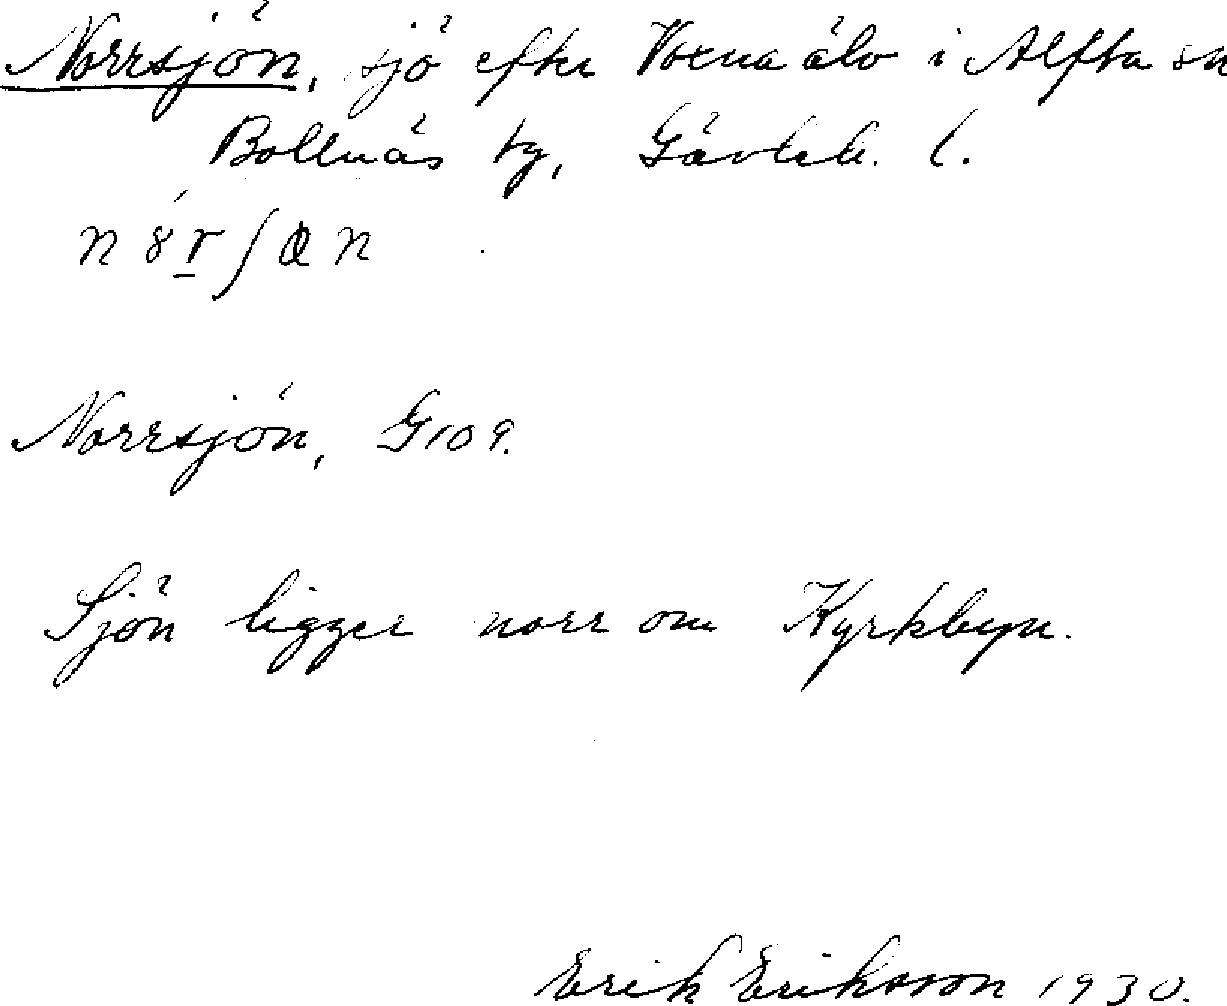 Norrsjön, sjö efter Voxna älv i Alfta sn
Bollnäs tg, Gävleb. l.
Norrsjön, G109.
Sjön ligger norr om Kyrkbyn.
Erik Eriksson 1930.